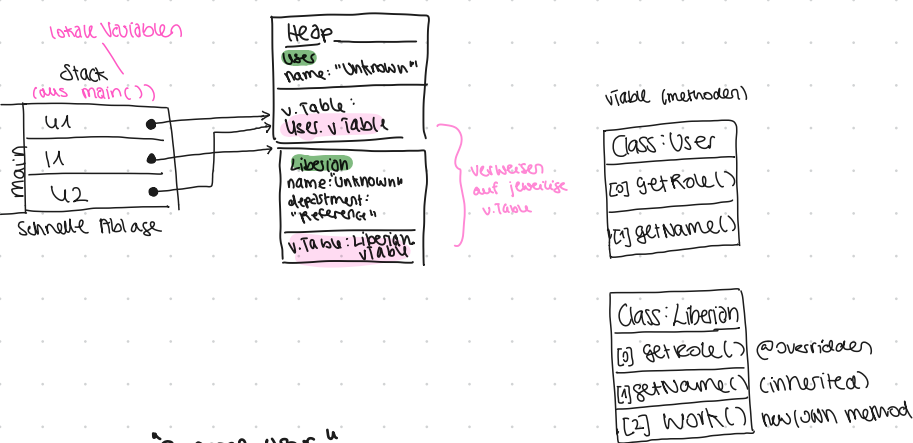 lokale Variablen
Stack
(aus main())
main
u1
l1
u2
Schnelle Ablage
Heap
User
name: "Unknown"
v.Table:
User.vTable
Liberian
name: "Unknown"
department:
"Reference"
v.Table: Liberian
vTable
verweisen
auf jeweilige
v.Table
vTable (methoden)
Class: User
[0] getRole()
[1] getName()
Class: Liberian
[0] getRole() @Overridden
[1] getName() (inherited)
[2] work() new/own method